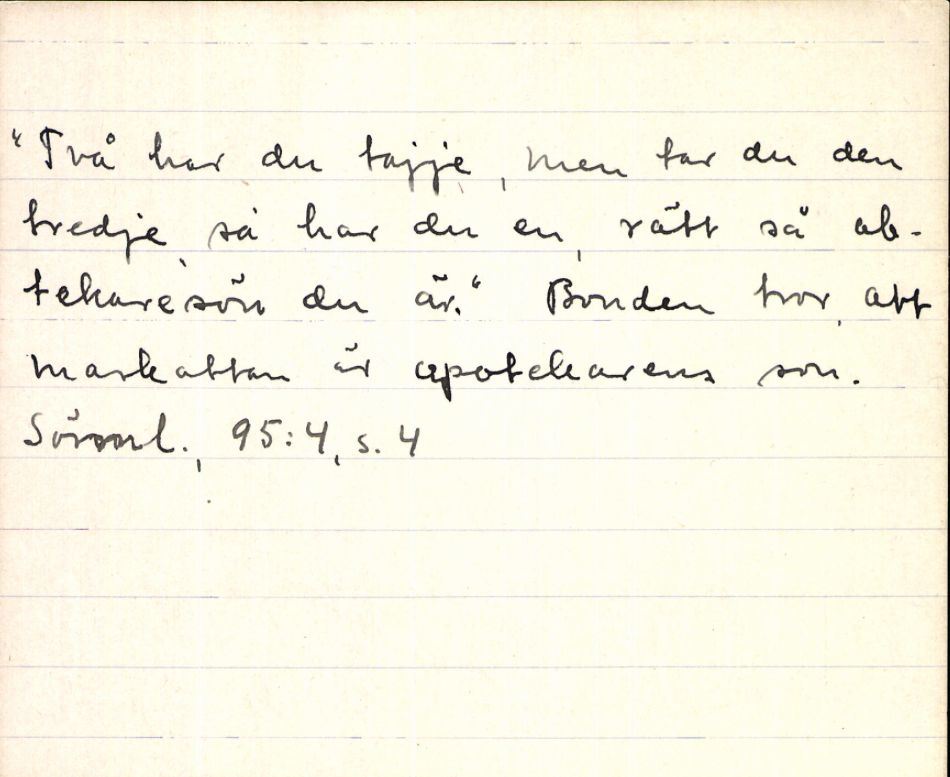 "Två har du tajje, men tar du den
tredje, så har du en, rätt så ab-
tekaresön du är." Bonden tror, att
markattan är apotekarens son.
Sörml., 95:4, s. 4